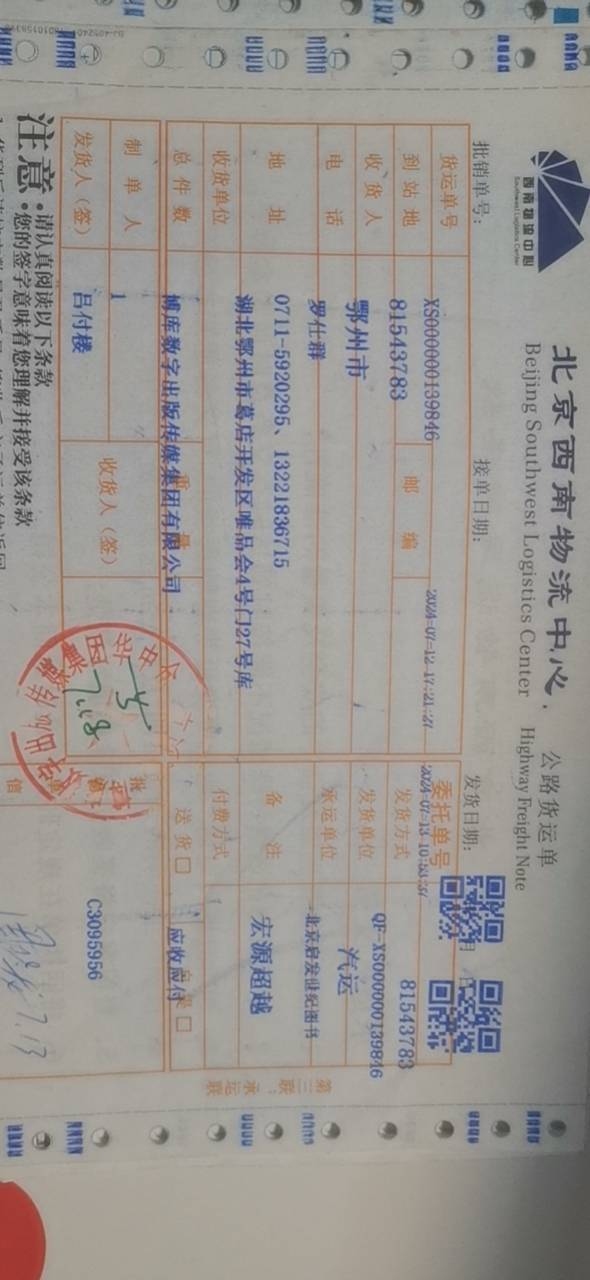 西南物流中心
Southwest Logistics Center
北京西南物流中心
公路货运单
Beijing Southwest Logistics Center Highway Freight Note
批销单号：
接单日期：
发货日期：
2024-07-12 17:21:27
2024-07-13 10:53:37
货运单号 XS000000139846
委托单号
81543783
到站地 81543783
邮编
发货方式
QF-XS000000139846
收货人 鄂州市
发货单位 汽运
电话 罗仕群
承运单位 北京启发世纪图书
地址 0711-5920295、13221836715
备注 宏源超越
收货单位 湖北鄂州市葛店开发区唯品会4号门27号库
付费方式
总件数 博库数字出版传媒集团有限公司
重量
送货□
应收应付
制单人 1
收货人（签）
C3095956
发货人（签） 吕付楼
7.18
7.13
第三联：承运联
注意
·请认真阅读以下条款
·您的签字意味着您理解并接受该条款